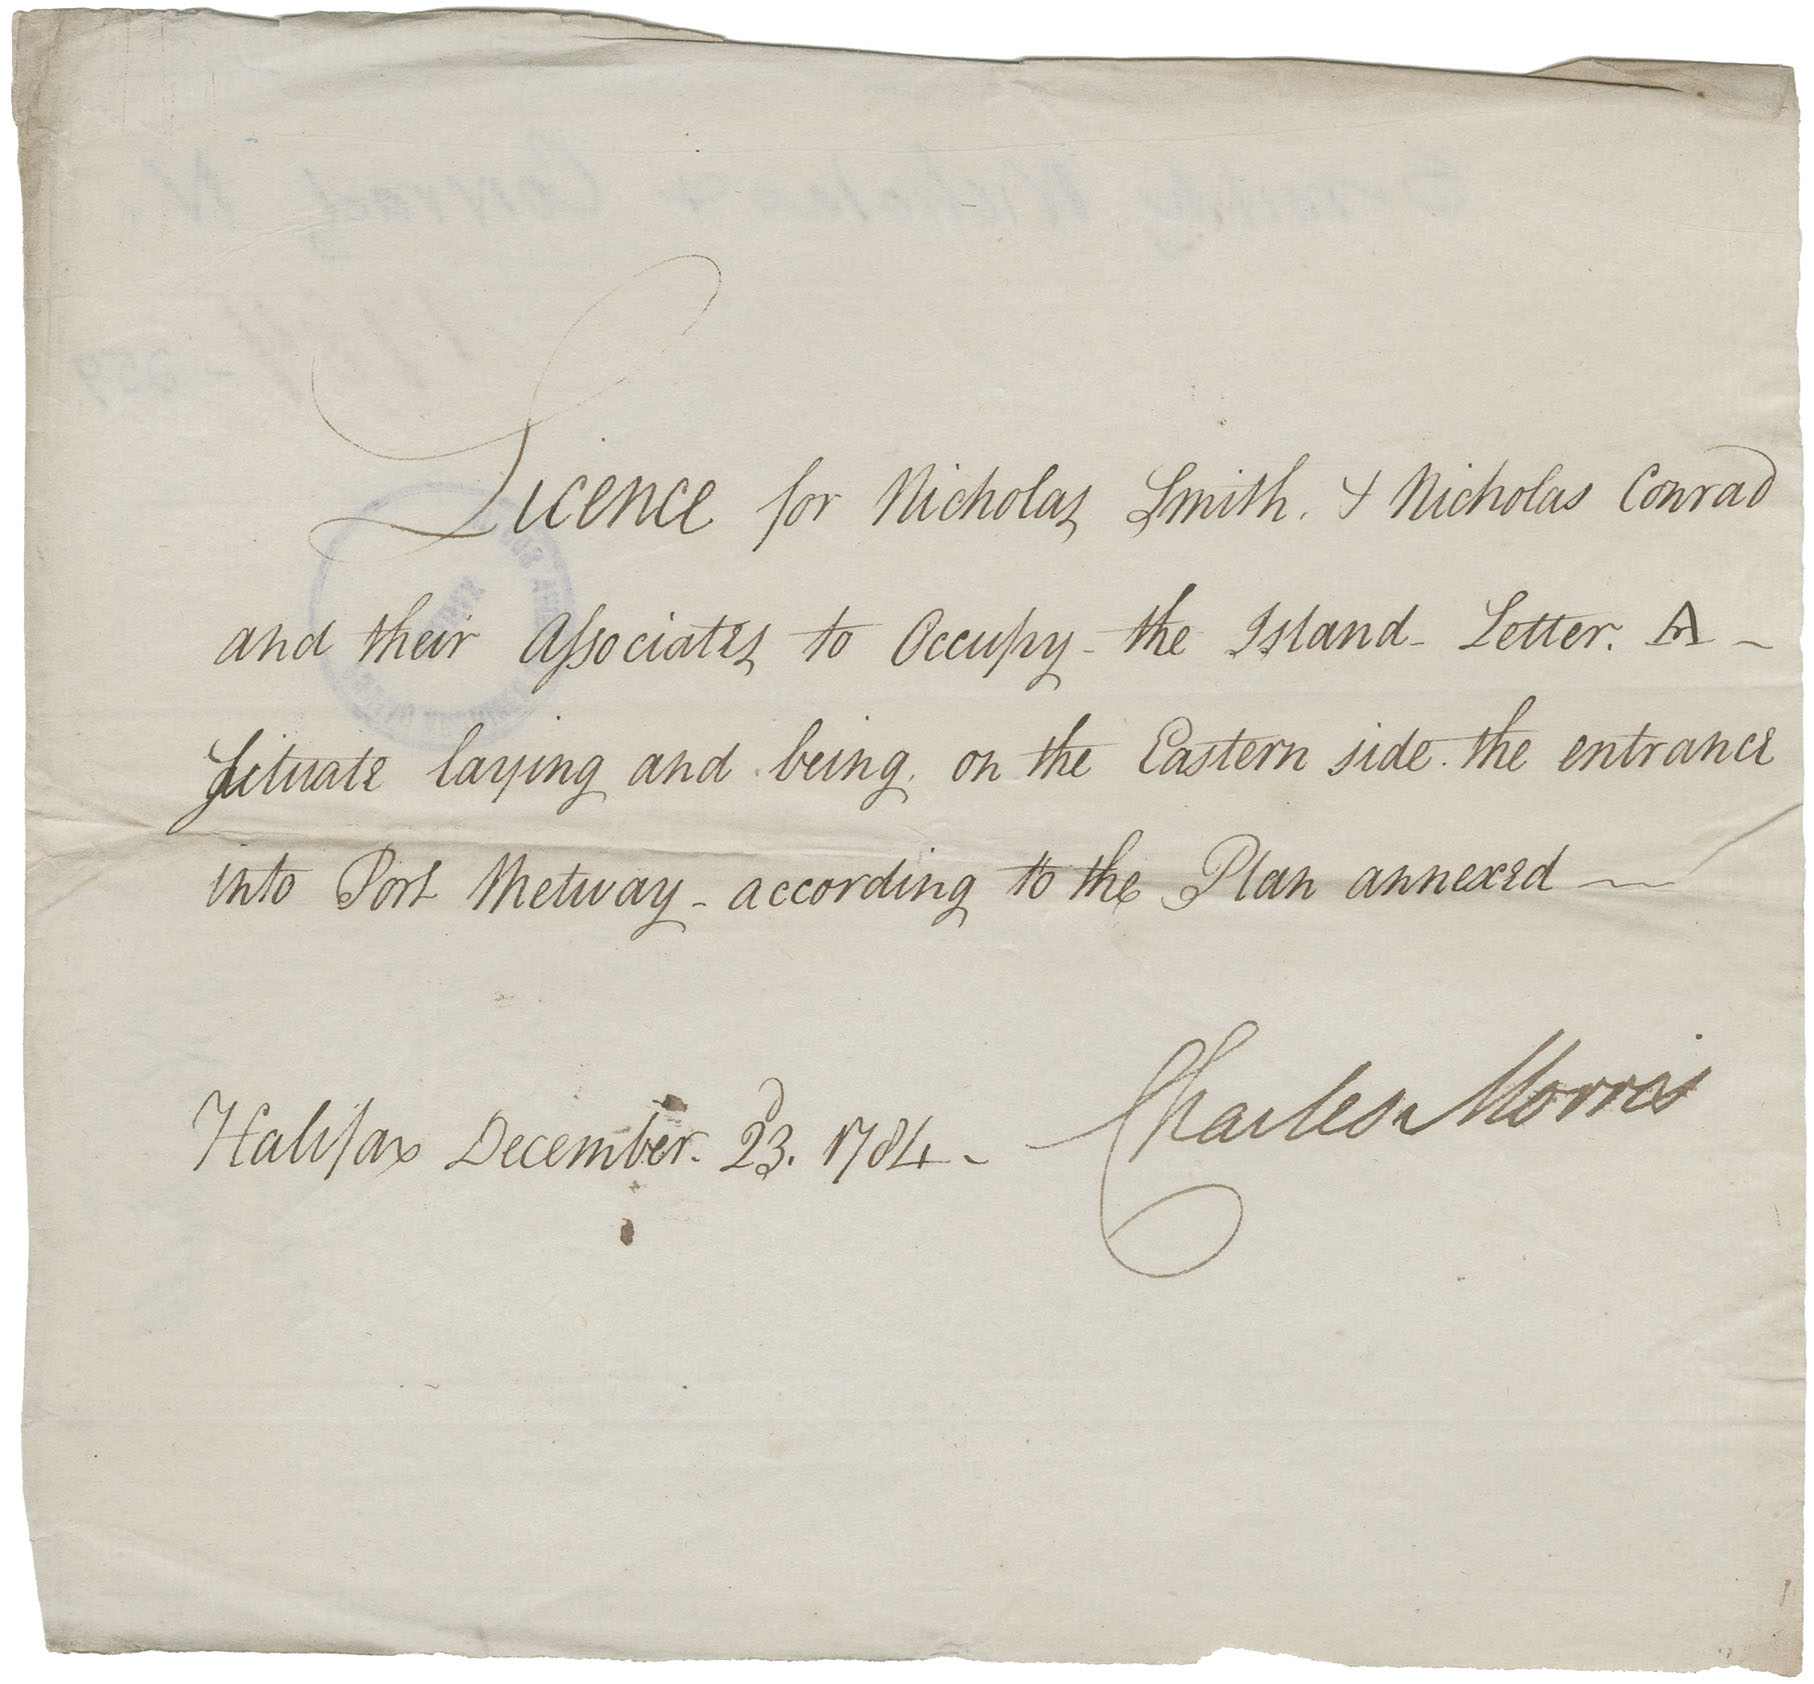 Licence for Nicholas Smith. & Nicholas Conrad
and their Associates to Occupy - the Island - Letter. A -
Situate laying and being, on the Eastern side. the entrance
into Port Metway - according to the Plan annexed —
Halifax December. 23.d 1784 -
Charles Morris